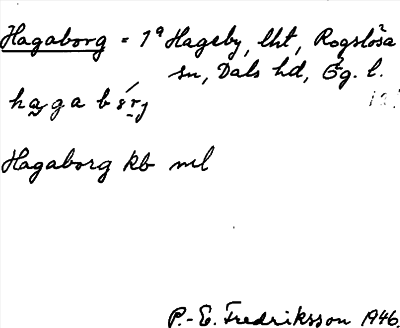 Hagaborg = 1ª Hageby, lht, Rogslösa
sn, Dals hd, Ög. l.
haga bǝrj
Hagaborg kb ml
P.-E. Fredriksson 1946.